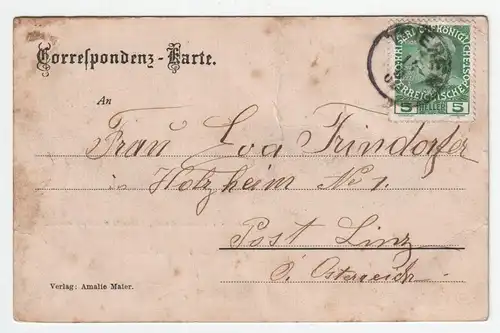 Correspondenz-Karte.
KAISERLICHE KÖNIGLICHE
ÖSTERREICHISCHE
5 HELLER 5
An
Frau Eva Trindorfer
in Holzheim No 1.
Post Linz
O. Österreich
Verlag: Amalie Maier.